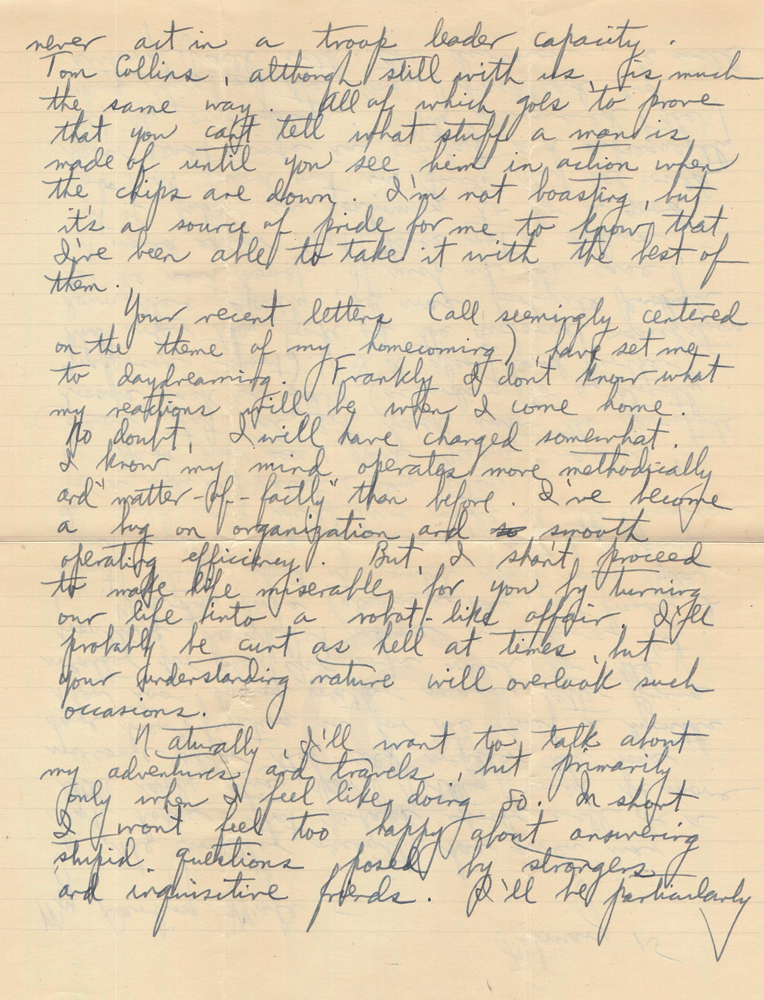 never act in a troop leader capacity.
Tom Collins, although still with us, is much
the same way. All of which goes to prove
that you can't tell what stuff a man is
made of until you see him in action when
the chips are down. I'm not boasting, but
it's a source of pride for me to know that
I've been able to take it with the best of
them.
Your recent letters (all seemingly centered
on the theme of my homecoming) have set me
to daydreaming. Frankly I don't know what
my reactions will be when I come home.
No doubt, I will have changed somewhat.
I know my mind operates more methodically
and "matter-of-factly" than before. I've become
a bug on organization and so smooth
operating efficiency. But, I shan't proceed
to make life miserable for you by turning
our life into a robot-like affair. I'll
probably be curt as hell at times, but
your understanding nature will overlook such
occasions.
Naturally, I'll want to talk about
my adventures and travels, but primarily
only when I feel like doing so. In short
I won't feel too happy about answering
stupid questions posed by strangers
and inquisitive friends. I'll be particularly